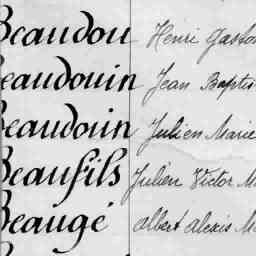 Beaudou Henri Gaston
Beaudouin Jean Baptis
Beaudouin Julien Marie
Beaufils Julien Victor M
Beaugé Albert Alexis Ma